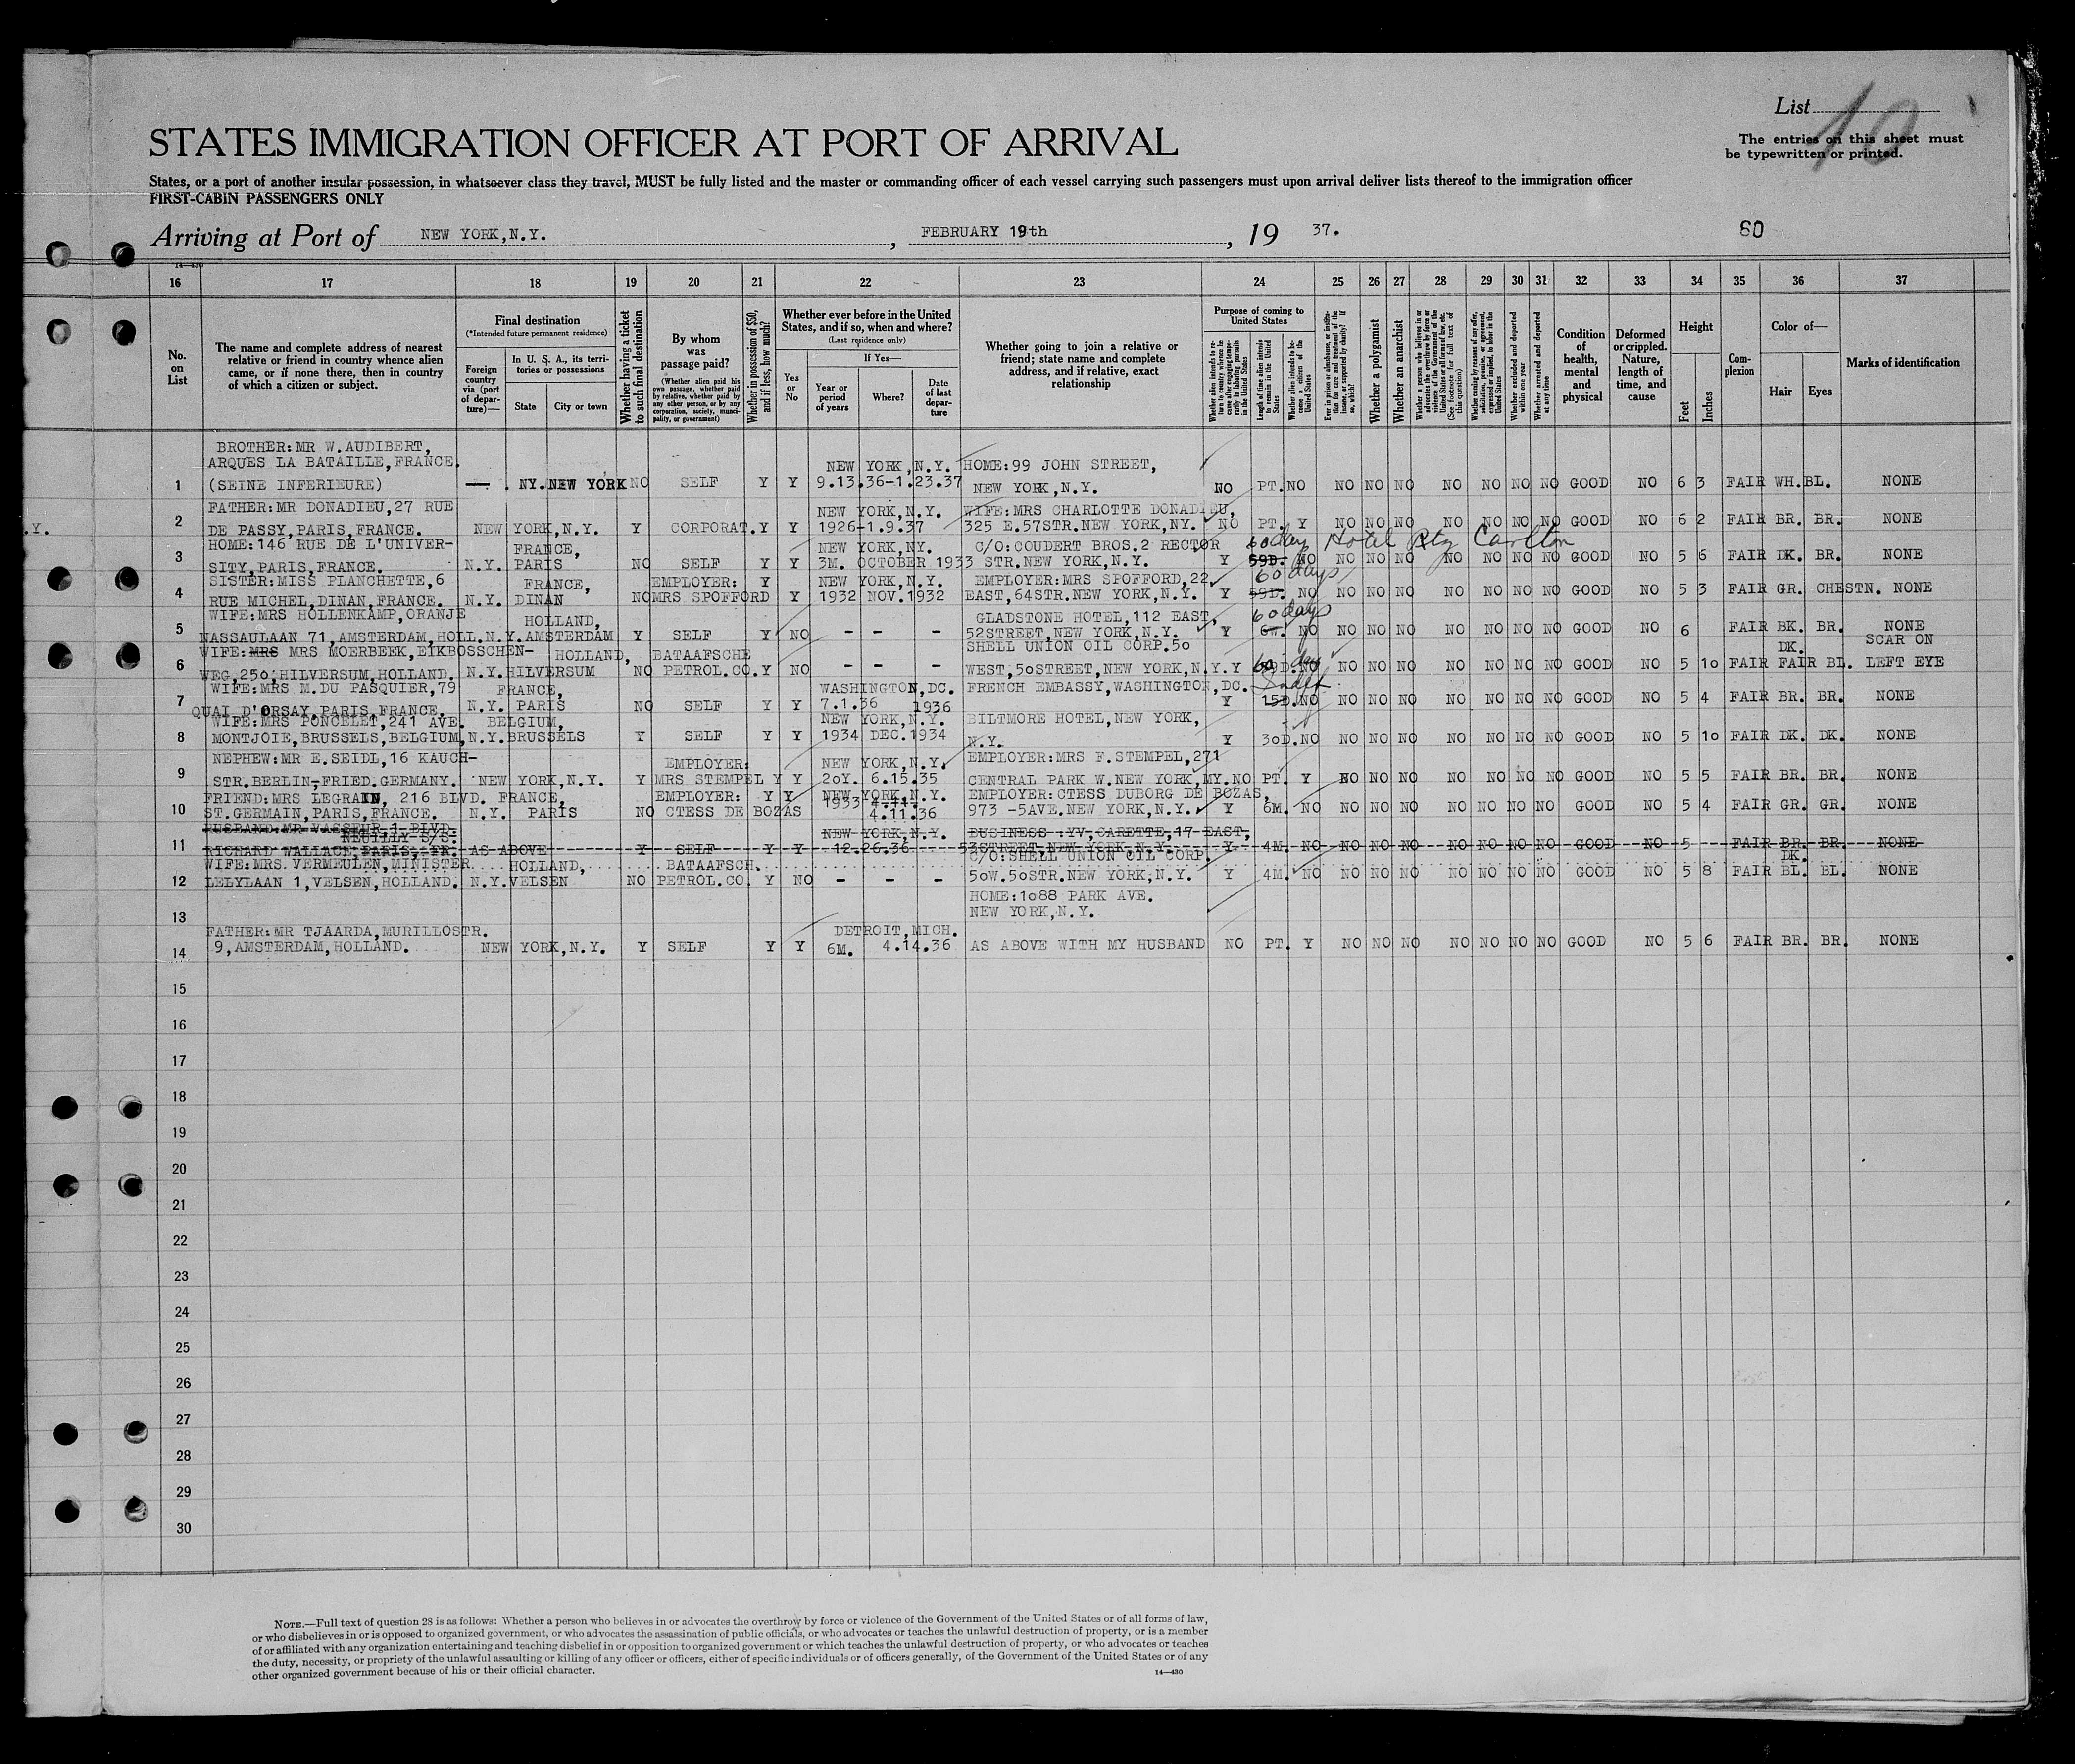 List 10
STATES IMMIGRATION OFFICER AT PORT OF ARRIVAL
The entries on this sheet must
be typewritten or printed.
States, or a port of another insular possession, in whatsoever class they travel, MUST be fully listed and the master or commanding officer of each vessel carrying such passengers must upon arrival deliver lists thereof to the immigration officer
FIRST-CABIN PASSENGERS ONLY
Arriving at Port of NEW YORK,N.Y. , FEBRUARY 19th , 19 37. 60
14-430
16 17 18 19 20 21 22 23 24 25 26 27 28 29 30 31 32 33 34 35 36 37
No. on List
The name and complete address of nearest relative or friend in country whence alien came, or if none there, then in country of which a citizen or subject.
Final destination
(*Intended future permanent residence)
Foreign country via (port of departure)—
In U. S. A., its territories or possessions
State City or town
Whether having a ticket to such final destination
By whom was passage paid?
(Whether alien paid his own passage, whether paid by relative, whether paid by any other person, or by any corporation, society, municipality, or government)
Whether in possession of $50, and if less, how much?
Whether ever before in the United States, and if so, when and where?
(Last residence only)
Yes or No
If Yes—
Year or period of years Where? Date of last departure
Whether going to join a relative or friend; state name and complete address, and if relative, exact relationship
Purpose of coming to United States
Whether alien intends to return to country whence he came after engaging temporarily in laboring pursuits in the United States
Length of time alien intends to remain in the United States
Whether alien intends to become a citizen of the United States
Ever in prison or almshouse, or institution for care and treatment of the insane, or supported by charity? If so, which?
Whether a polygamist
Whether an anarchist
Whether a person who believes in or advocates the overthrow by force or violence of the Government of the United States or all forms of law, etc. (See footnote for full text of this question)
Whether coming by reasons of any offer, solicitation, promise, or agreement, expressed or implied, to labor in the United States
Whether excluded and deported within one year
Whether arrested and deported at any time
Condition of health, mental and physical
Deformed or crippled. Nature, length of time, and cause
Height
Feet Inches
Complexion
Color of—
Hair Eyes
Marks of identification
BROTHER:MR W.AUDIBERT,
ARQUES LA BATAILLE,FRANCE. NEW YORK,N.Y. HOME:99 JOHN STREET,
1 (SEINE INFERIEURE) — . NY.NEW YORK NO SELF Y Y 9.13.36-1.23.37 NEW YORK,N.Y. NO PT. NO NO NO NO NO NO NO NO GOOD NO 6 3 FAIR WH. BL. NONE
FATHER:MR DONADIEU,27 RUE NEW YORK,N.Y. WIFE:MRS CHARLOTTE DONADIEU,
.Y. 2 DE PASSY,PARIS,FRANCE. NEW YORK,N.Y. Y CORPORAT. Y Y 1926-1.9.37 325 E.57STR.NEW YORK,NY. NO PT. Y NO NO NO NO NO NO NO GOOD NO 6 2 FAIR BR. BR. NONE
HOME:146 RUE DE L'UNIVER- FRANCE, NEW YORK,NY. C/O:COUDERT BROS.2 RECTOR 60 day Hotel Ritz Carlton
3 SITY,PARIS,FRANCE. N.Y. PARIS NO SELF Y Y 3M. OCTOBER 1933 STR.NEW YORK,N.Y. Y 59D. NO NO NO NO NO NO NO NO GOOD NO 5 6 FAIR DK. BR. NONE
SISTER:MISS PLANCHETTE,6 FRANCE, EMPLOYER: Y NEW YORK,N.Y. EMPLOYER:MRS SPOFFORD,22 60 days
4 RUE MICHEL,DINAN,FRANCE. N.Y. DINAN NO MRS SPOFFORD Y 1932 NOV.1932 EAST,64STR.NEW YORK,N.Y. Y 59D. NO NO NO NO NO NO NO NO GOOD NO 5 3 FAIR GR. CHESTN. NONE
WIFE:MRS HOLLENKAMP,ORANJE HOLLAND, GLADSTONE HOTEL,112 EAST, 60 days
5 NASSAULAAN 71,AMSTERDAM,HOLL. N.Y. AMSTERDAM Y SELF Y NO - - - 52STREET,NEW YORK,N.Y. Y 6W. NO NO NO NO NO NO NO NO GOOD NO 6 FAIR BK. BR. NONE
WIFE:MRS MRS MOERBEEK,EIKBOSSCHEN- HOLLAND, BATAAFSCHE SHELL UNION OIL CORP.5o 60 day DK. SCAR ON
6 WEG,25o,HILVERSUM,HOLLAND. N.Y.HILVERSUM NO PETROL.CO. Y NO - - - WEST,5oSTREET,NEW YORK,N.Y. Y NO NO NO NO NO NO NO NO GOOD NO 5 1o FAIR FAIR BL. LEFT EYE
WIFE:MRS M.DU PASQUIER,79 FRANCE, WASHINGTON,DC. FRENCH EMBASSY,WASHINGTON,DC. Indef
7 QUAI D'ORSAY,PARIS,FRANCE. N.Y. PARIS NO SELF Y Y 7.1.36 1936 Y 15D. NO NO NO NO NO NO NO NO GOOD NO 5 4 FAIR BR. BR. NONE
WIFE:MRS PONCELET,241 AVE. BELGIUM, NEW YORK,N.Y. BILTMORE HOTEL,NEW YORK,
8 MONTJOIE,BRUSSELS,BELGIUM, N.Y.BRUSSELS Y SELF Y Y 1934 DEC.1934 N.Y. Y 3oD. NO NO NO NO NO NO NO NO GOOD NO 5 1o FAIR DK. DK. NONE
NEPHEW:MR E.SEIDL,16 KAUCH- EMPLOYER: NEW YORK,N.Y. EMPLOYER:MRS F.STEMPEL,271
9 STR.BERLIN-FRIED.GERMANY. NEW YORK,N.Y. Y MRS STEMPEL Y Y 2oY. 6.15.35 CENTRAL PARK W.NEW YORK,NY. NO PT. Y NO NO NO NO NO NO NO GOOD NO 5 5 FAIR BR. BR. NONE
FRIEND:MRS LEGRAIN, 216 BLVD. FRANCE, EMPLOYER: Y Y NEW YORK,N.Y. EMPLOYER:CTESS DUBORG DE BOZAS,
10 ST.GERMAIN,PARIS,FRANCE. N.Y. PARIS NO CTESS DE BOZAS 1933 4.11.36 973 -5AVE.NEW YORK,N.Y. Y 6M. NO NO NO NO NO NO NO NO GOOD NO 5 4 FAIR GR. GR. NONE
HUSBAND:MR VASSEUR,1 BLVD. NEUILLY S/S. NEW YORK,N.Y. BUSINESS :YV,CARETTE,17 EAST,
11 RICHARD WALLACE,PARIS, FR. AS ABOVE Y SELF Y Y 12.26.36 53STREET,NEW YORK,N.Y. Y 4M. NO NO NO NO NO NO NO NO GOOD NO 5 FAIR BR. BR. NONE
WIFE:MRS.VERMEULEN,MINISTER HOLLAND, BATAAFSCH. C/O:SHELL UNION OIL CORP. DK.
12 LELYLAAN 1,VELSEN,HOLLAND. N.Y.VELSEN NO PETROL.CO. Y NO - - - 5oW.5oSTR.NEW YORK,N.Y. Y 4M. NO NO NO NO NO NO NO NO GOOD NO 5 8 FAIR BL. BL. NONE
HOME:1o88 PARK AVE.
13 NEW YORK,N.Y.
FATHER:MR TJAARDA,MURILLOSTR. DETROIT,MICH.
14 9,AMSTERDAM,HOLLAND. NEW YORK,N.Y. Y SELF Y Y 6M. 4.14.36 AS ABOVE WITH MY HUSBAND NO PT. Y NO NO NO NO NO NO NO GOOD NO 5 6 FAIR BR. BR. NONE
15
16
17
18
19
20
21
22
23
24
25
26
27
28
29
30
NOTE.—Full text of question 28 is as follows: Whether a person who believes in or advocates the overthrow by force or violence of the Government of the United States or of all forms of law,
or who disbelieves in or is opposed to organized government, or who advocates the assassination of public officials, or who advocates or teaches the unlawful destruction of property, or is a member
of or affiliated with any organization entertaining and teaching disbelief in or opposition to organized government or which teaches the unlawful destruction of property, or who advocates or teaches
the duty, necessity, or propriety of the unlawful assaulting or killing of any officer or officers, either of specific individuals or of officers generally, of the Government of the United States or of any
other organized government because of his or their official character.
14—430